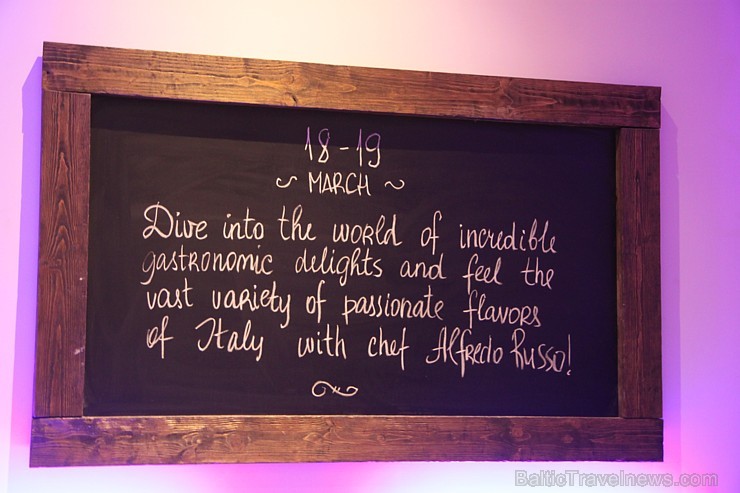 18-19
~ MARCH ~
Dive into the world of incredible
gastronomic delights and feel the
vast variety of passionate flavors
of Italy with chef Alfredo Russo!
BalticTravelnews.com